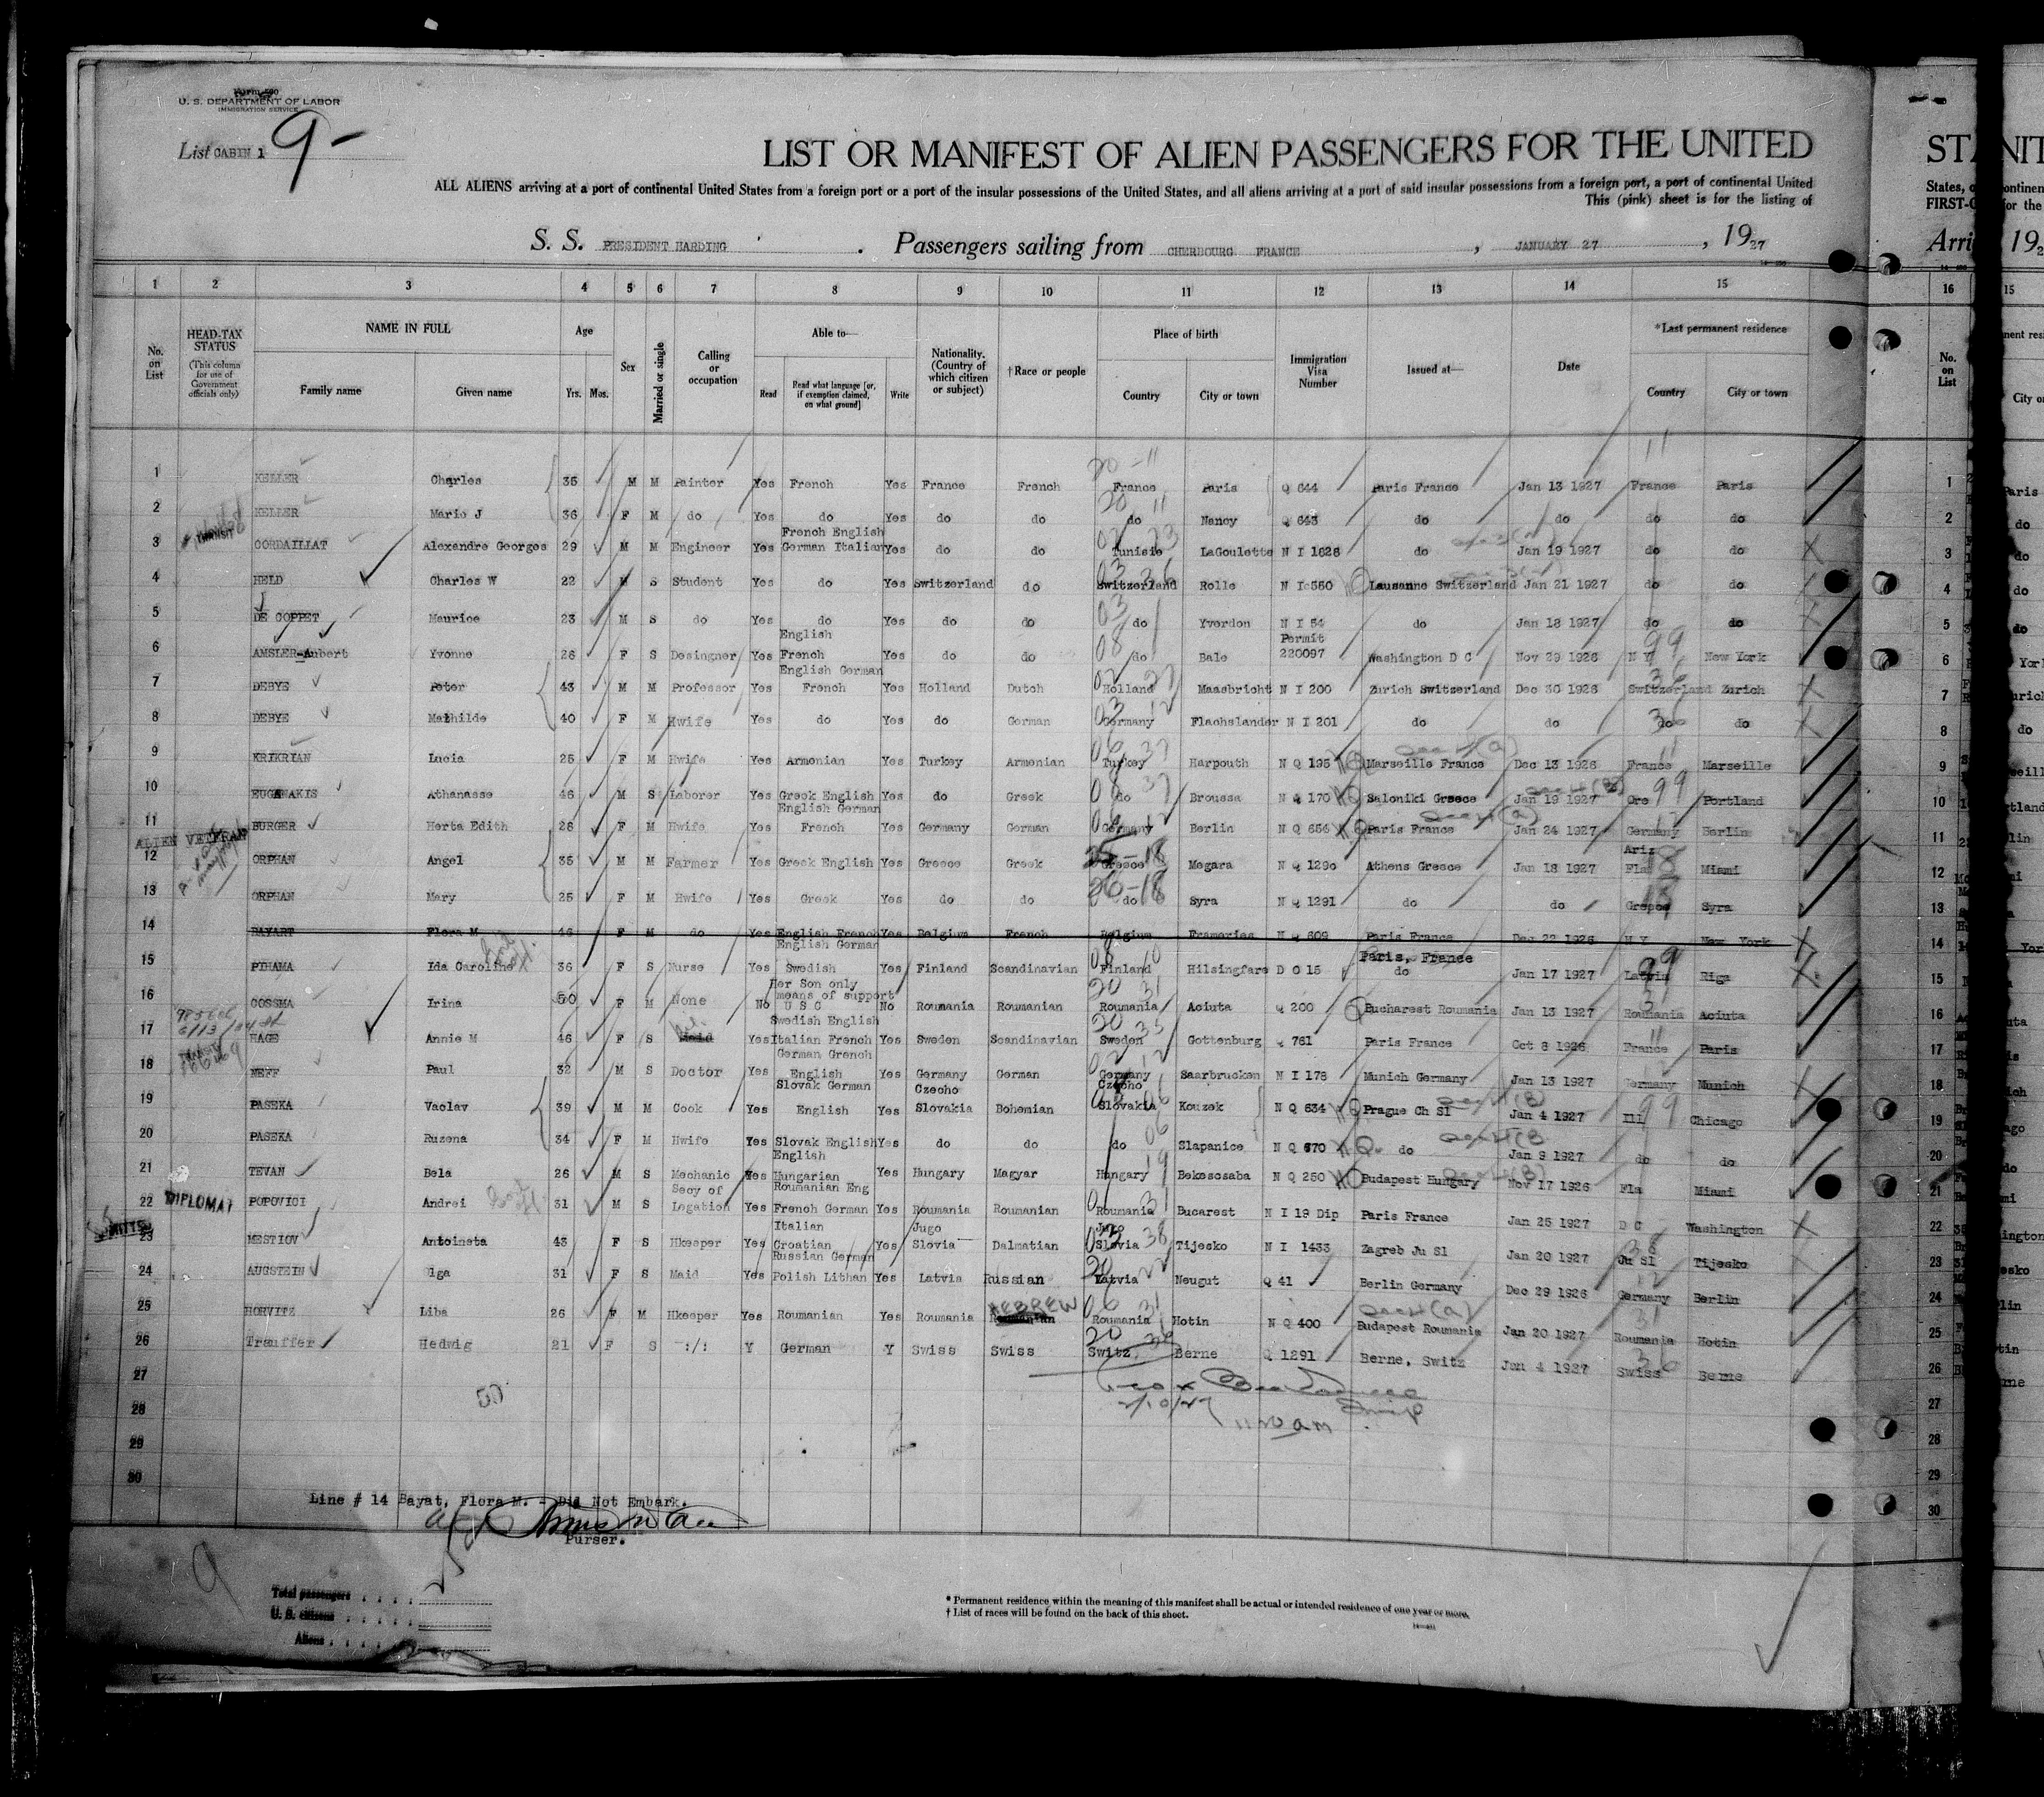 U. S. DEPARTMENT OF LABOR
IMMIGRATION SERVICE
List CABIN 1 9-
LIST OR MANIFEST OF ALIEN PASSENGERS FOR THE UNITED
ALL ALIENS arriving at a port of continental United States from a foreign port or a port of the insular possessions of the United States, and all aliens arriving at a port of said insular possessions from a foreign port, a port of continental United
This (pink) sheet is for the listing of
S. S. PRESIDENT HARDING . Passengers sailing from CHERBOURG FRANCE , JANUARY 27 , 1927
1 2 3 4 5 6 7 8 9 10 11 12 13 14 15
No. on List
HEAD-TAX STATUS
(This column for use of Government officials only)
NAME IN FULL
Family name Given name
Age
Yrs. Mos.
Sex
Married or single
Calling or occupation
Able to—
Read
Read what language [or, if exemption claimed, on what ground]
Write
Nationality. (Country of which citizen or subject)
†Race or people
Place of birth
Country City or town
Immigration Visa Number
Issued at—
Date
*Last permanent residence
Country City or town
1 KELLER Charles 35 M M Painter Yes French Yes France French France Paris Q 644 Paris France Jan 13 1927 France Paris
2 KELLER Marie J 36 F M do Yes do Yes do do do Nancy Q 643 do do do do
TRANSIT
3 CORDAILLAT Alexandre Georges 29 M M Engineer Yes French English German Italian Yes do do Tunisie LaGoulette N I 1626 do Jan 19 1927 do do
4 HELD Charles W 22 M S Student Yes do Yes Switzerland do Switzerland Rolle N I 550 Lausanne Switzerland Jan 21 1927 do do
5 DE COPPET Maurice 23 M S do Yes do Yes do do do Yverdon N I 54 do Jan 18 1927 do do
6 AMSLER-Aubert Yvonne 26 F S Desingner Yes English French Yes do do do Bale Permit 220097 Washington D C Nov 29 1926 N Y New York
7 DEBYE Peter 43 M M Professor Yes English German French Yes Holland Dutch Holland Maasbricht N I 200 Zurich Switzerland Dec 30 1926 Switzerland Zurich
8 DEBYE Mathilde 40 F M Hwife Yes do Yes do German Germany Flachslander N I 201 do do do do
9 KRIKRYAN Lucia 25 F M Hwife Yes Armenian Yes Turkey Armenian Turkey Harpouth N Q 195 Marseille France Dec 13 1926 France Marseille
10 EUGENAKIS Athanasse 46 M S Laborer Yes Greek English Yes do Greek do Broussa N Q 170 Saloniki Greece Jan 19 1927 Ore Portland
11 BURGER Herta Edith 26 F M Hwife Yes English German French Yes Germany German Germany Berlin N Q 656 Paris France Jan 24 1927 Germany Berlin
ALIEN VETERAN
12 ORPHAN Angel 35 M M Farmer Yes Greek English Yes Greece Greek Greece Megara N Q 1290 Athens Greece Jan 18 1927 Ariz Fla Miami
13 ORPHAN Mary 25 F M Hwife Yes Greek Yes do do do Syra N Q 1291 do do Greece Syra
14 BAYART Flora M 46 F M do Yes English French Yes Belgium French Belgium Frameries N Q 609 Paris France Dec 22 1926 N Y New York
15 PIHAMA Ida Caroline 36 F S Nurse Yes English German Swedish Yes Finland Scandinavian Finland Hilsingfars D C 15 Paris, France do Jan 17 1927 Latvia Riga
16 COSSMA Irina 50 F M None No Her Son only means of support U S C No Roumania Roumanian Roumania Aciuta Q 200 Bucharest Roumania Jan 13 1927 Roumania Aciuta
17 HAGE Annie M 46 F S Maid Yes Swedish English Italian French Yes Sweden Scandinavian Sweden Gottenburg Q 761 Paris France Oct 8 1926 France Paris
TRANSIT
18 NEFF Paul 32 M S Doctor Yes German Grench English Yes Germany German Germany Saarbrucken N I 178 Munich Germany Jan 13 1927 Germany Munich
19 PASEKA Vaclav 39 M M Cook Yes Slovak German English Yes Czecho Slovakia Bohemian Czecho Slovakia Kouzek N Q 634 Prague Ch Sl Jan 4 1927 Ill Chicago
20 PASEKA Ruzena 34 F M Hwife Yes Slovak English Yes do do do Slapanice N Q 670 do Jan 9 1927 do do
21 TEVAN Bela 26 M S Mechanic Yes English Hungarian Yes Hungary Magyar Hungary Bekescsaba N Q 250 Budapest Hungary Nov 17 1926 Fla Miami
DIPLOMAT
22 POPOVICI Andrei 31 M S Secy of Legation Yes Roumanian Eng French German Yes Roumania Roumanian Roumania Bucarest N I 19 Dip Paris France Jan 25 1927 D C Washington
23 MESTIOV Antoineta 43 F S Hkeeper Yes Italian Croatian Yes Jugo Slovia Dalmatian Jugo Slovia Tijesko N I 1433 Zagreb Ju Sl Jan 20 1927 Ju Sl Tijesko
24 AUGSTEIN Olga 31 F S Maid Yes Russian German Polish Lithan Yes Latvia Russian Latvia Neugut Q 41 Berlin Germany Dec 29 1926 Germany Berlin
25 HORVITZ Liba 26 F M Hkeeper Yes Roumanian Yes Roumania HEBREW Roumania Hotin N Q 400 Budapest Roumania Jan 20 1927 Roumania Hotin
26 Trauffer Hedwig 21 F S :/: Y German Y Swiss Swiss Switz, Berne Q 1291 Berne, Switz Jan 4 1927 Swiss Berne
27
28
2/10/27 11 20 am
29
30
Line # 14 Bayat, Flora M. - Did Not Embark.
Purser.
9
Total passengers . . . .
U. S. citizens . . . . .
Aliens . . . . .
* Permanent residence within the meaning of this manifest shall be actual or intended residence of one year or more.
† List of races will be found on the back of this sheet.